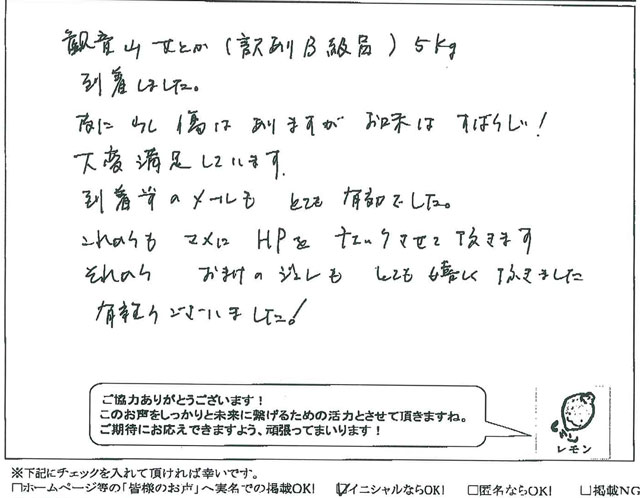 観音山せとか(訳ありB級品)5kg
到着しました。
皮に少し傷はありますがお味はすばらしい!
大変満足しています。
到着学のメールもとても有効でした。
これからもマメにHPをチェックさせて頂きます
それから おまけのジュレも とても嬉しく 頂きました
有難うございました!
ご協力ありがとうございます!
このお声をしっかりと未来に繋げるための活力とさせて頂きますね。
ご期待にお応えできますよう、頑張ってまいります!
レモン
※下記にチェックを入れて頂ければ幸いです。
□ホームページ等の「皆様のお声」へ実名での掲載OK! ☑イニシャルならOK! □匿名ならOK! □掲載NG